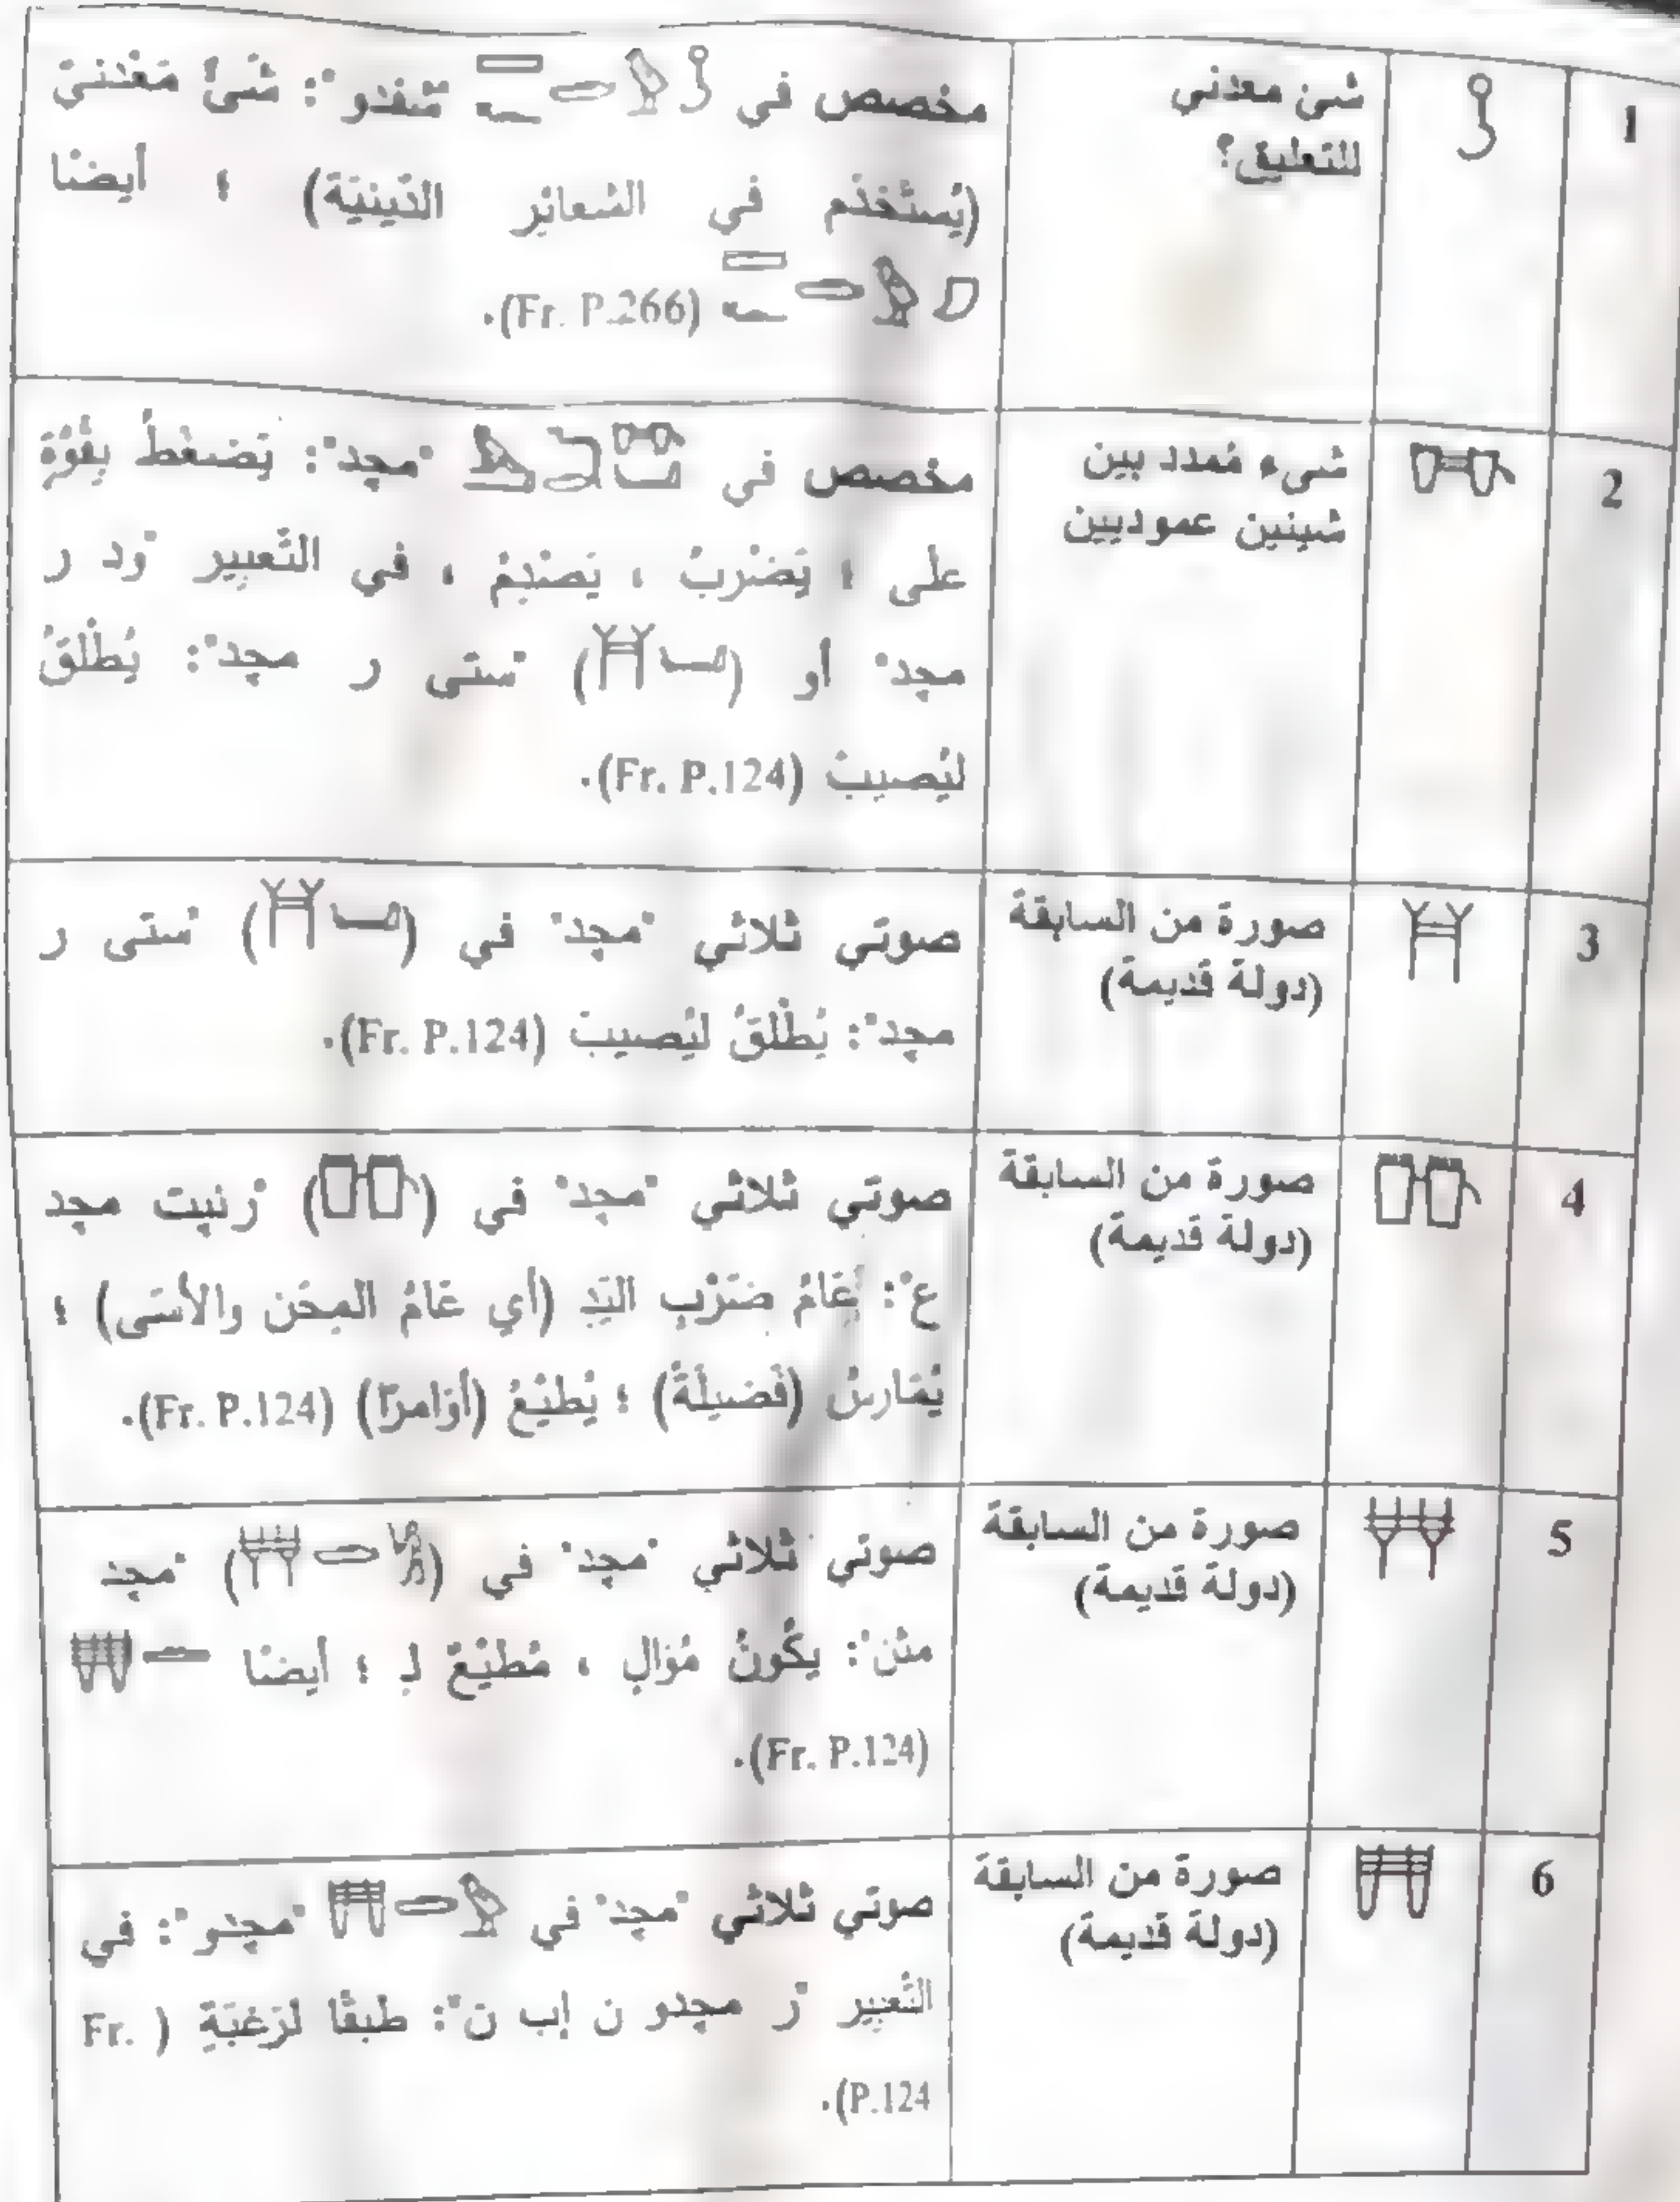 1
شئ معدني
للتعليق؟
مخصص في "شفدو": شئ معدني
(يُستخدم في الشعائر الدينية) ؛ أيضا
(Fr. P.266).
2
شيء مُمدد بين
شيئين عموديين
مخصص في "مجد": يَضغطُ بِقُوَّة
على ؛ يَضْربُ ، يَصْدِمُ ، في التَّعبير "ود ر
مجد" أو ( ) "ستى ر مجد": يُطْلقُ
ليُصيبَ (Fr. P.124).
3
صورة من السابقة
(دولة قديمة)
صوتي ثلاثي "مجد" في ( ) "ستى ر
مجد": يُطْلقُ ليُصيبَ (Fr. P.124).
4
صورة من السابقة
(دولة قديمة)
صوتي ثلاثي "مجد" في ( ) "رنبت مجد
ع": عَامُ ضَرْبِ اليَدِ (أي عَامُ المِحَن والأسَى) ؛
يُمَارسُ (فَضيلَةً) ؛ يُطيْعُ (أوَامرًا) (Fr. P.124).
5
صورة من السابقة
(دولة قديمة)
صوتي ثلاثي "مجد" في ( ) "مجد
مثن": يكُونُ مُوَالِ ، مُطيْعٌ لـِ ؛ أيضًا
(Fr. P.124).
6
صورة من السابقة
(دولة قديمة)
صوتي ثلاثي "مجد" في "مجدو": في
التَّعبير "ر مجدو ن إب ن": طبقًا لرَغبَةِ (Fr.
P.124).